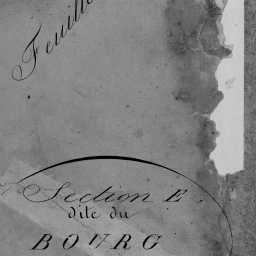 Feuille
Section E.
dite du
BOURG